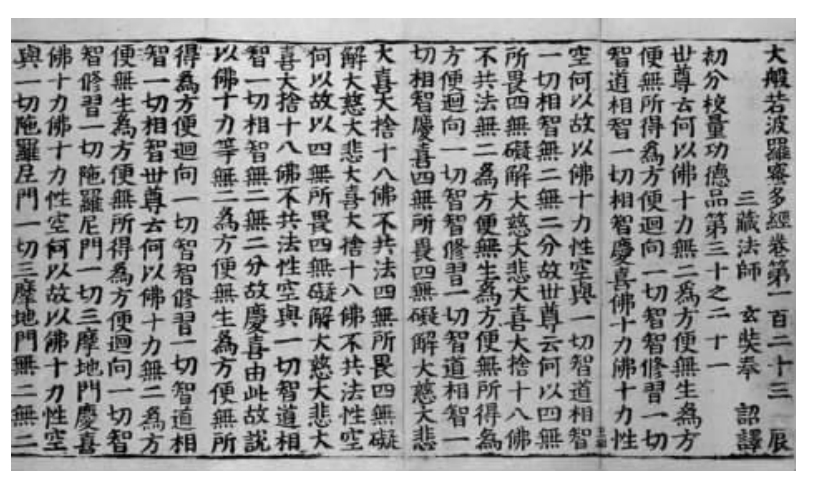 大般若波羅蜜多經卷第一百二十三 辰
三藏法師 玄奘奉 詔譯
初分校量功德品第三十之二十一
世尊云何以佛十力無二為方便無生為方
便無所得為方便迴向一切智智修習一切
智道相智一切相智慶喜佛十力佛十力性
空何以故以佛十力性空與一切智道相智
一切相智無二無二分故世尊云何以四無
所畏四無礙解大慈大悲大喜大捨十八佛
不共法無二為方便無生為方便無所得為
方便迴向一切智智修習一切智道相智一
切相智慶喜四無所畏四無礙解大慈大悲
大喜大捨十八佛不共法四無所畏四無礙
解大慈大悲大喜大捨十八佛不共法性空
何以故以四無所畏四無礙解大慈大悲大
喜大捨十八佛不共法性空與一切智道相
智一切相智無二無二分故慶喜由此故說
以佛十力等無二為方便無生為方便無所
得為方便迴向一切智智修習一切智道相
智一切相智世尊云何以佛十力無二為方
便無生為方便無所得為方便迴向一切智
智修習一切陁羅尼門一切三摩地門慶喜
佛十力佛十力性空何以故以佛十力性空
與一切陁羅尼門一切三摩地門無二無二